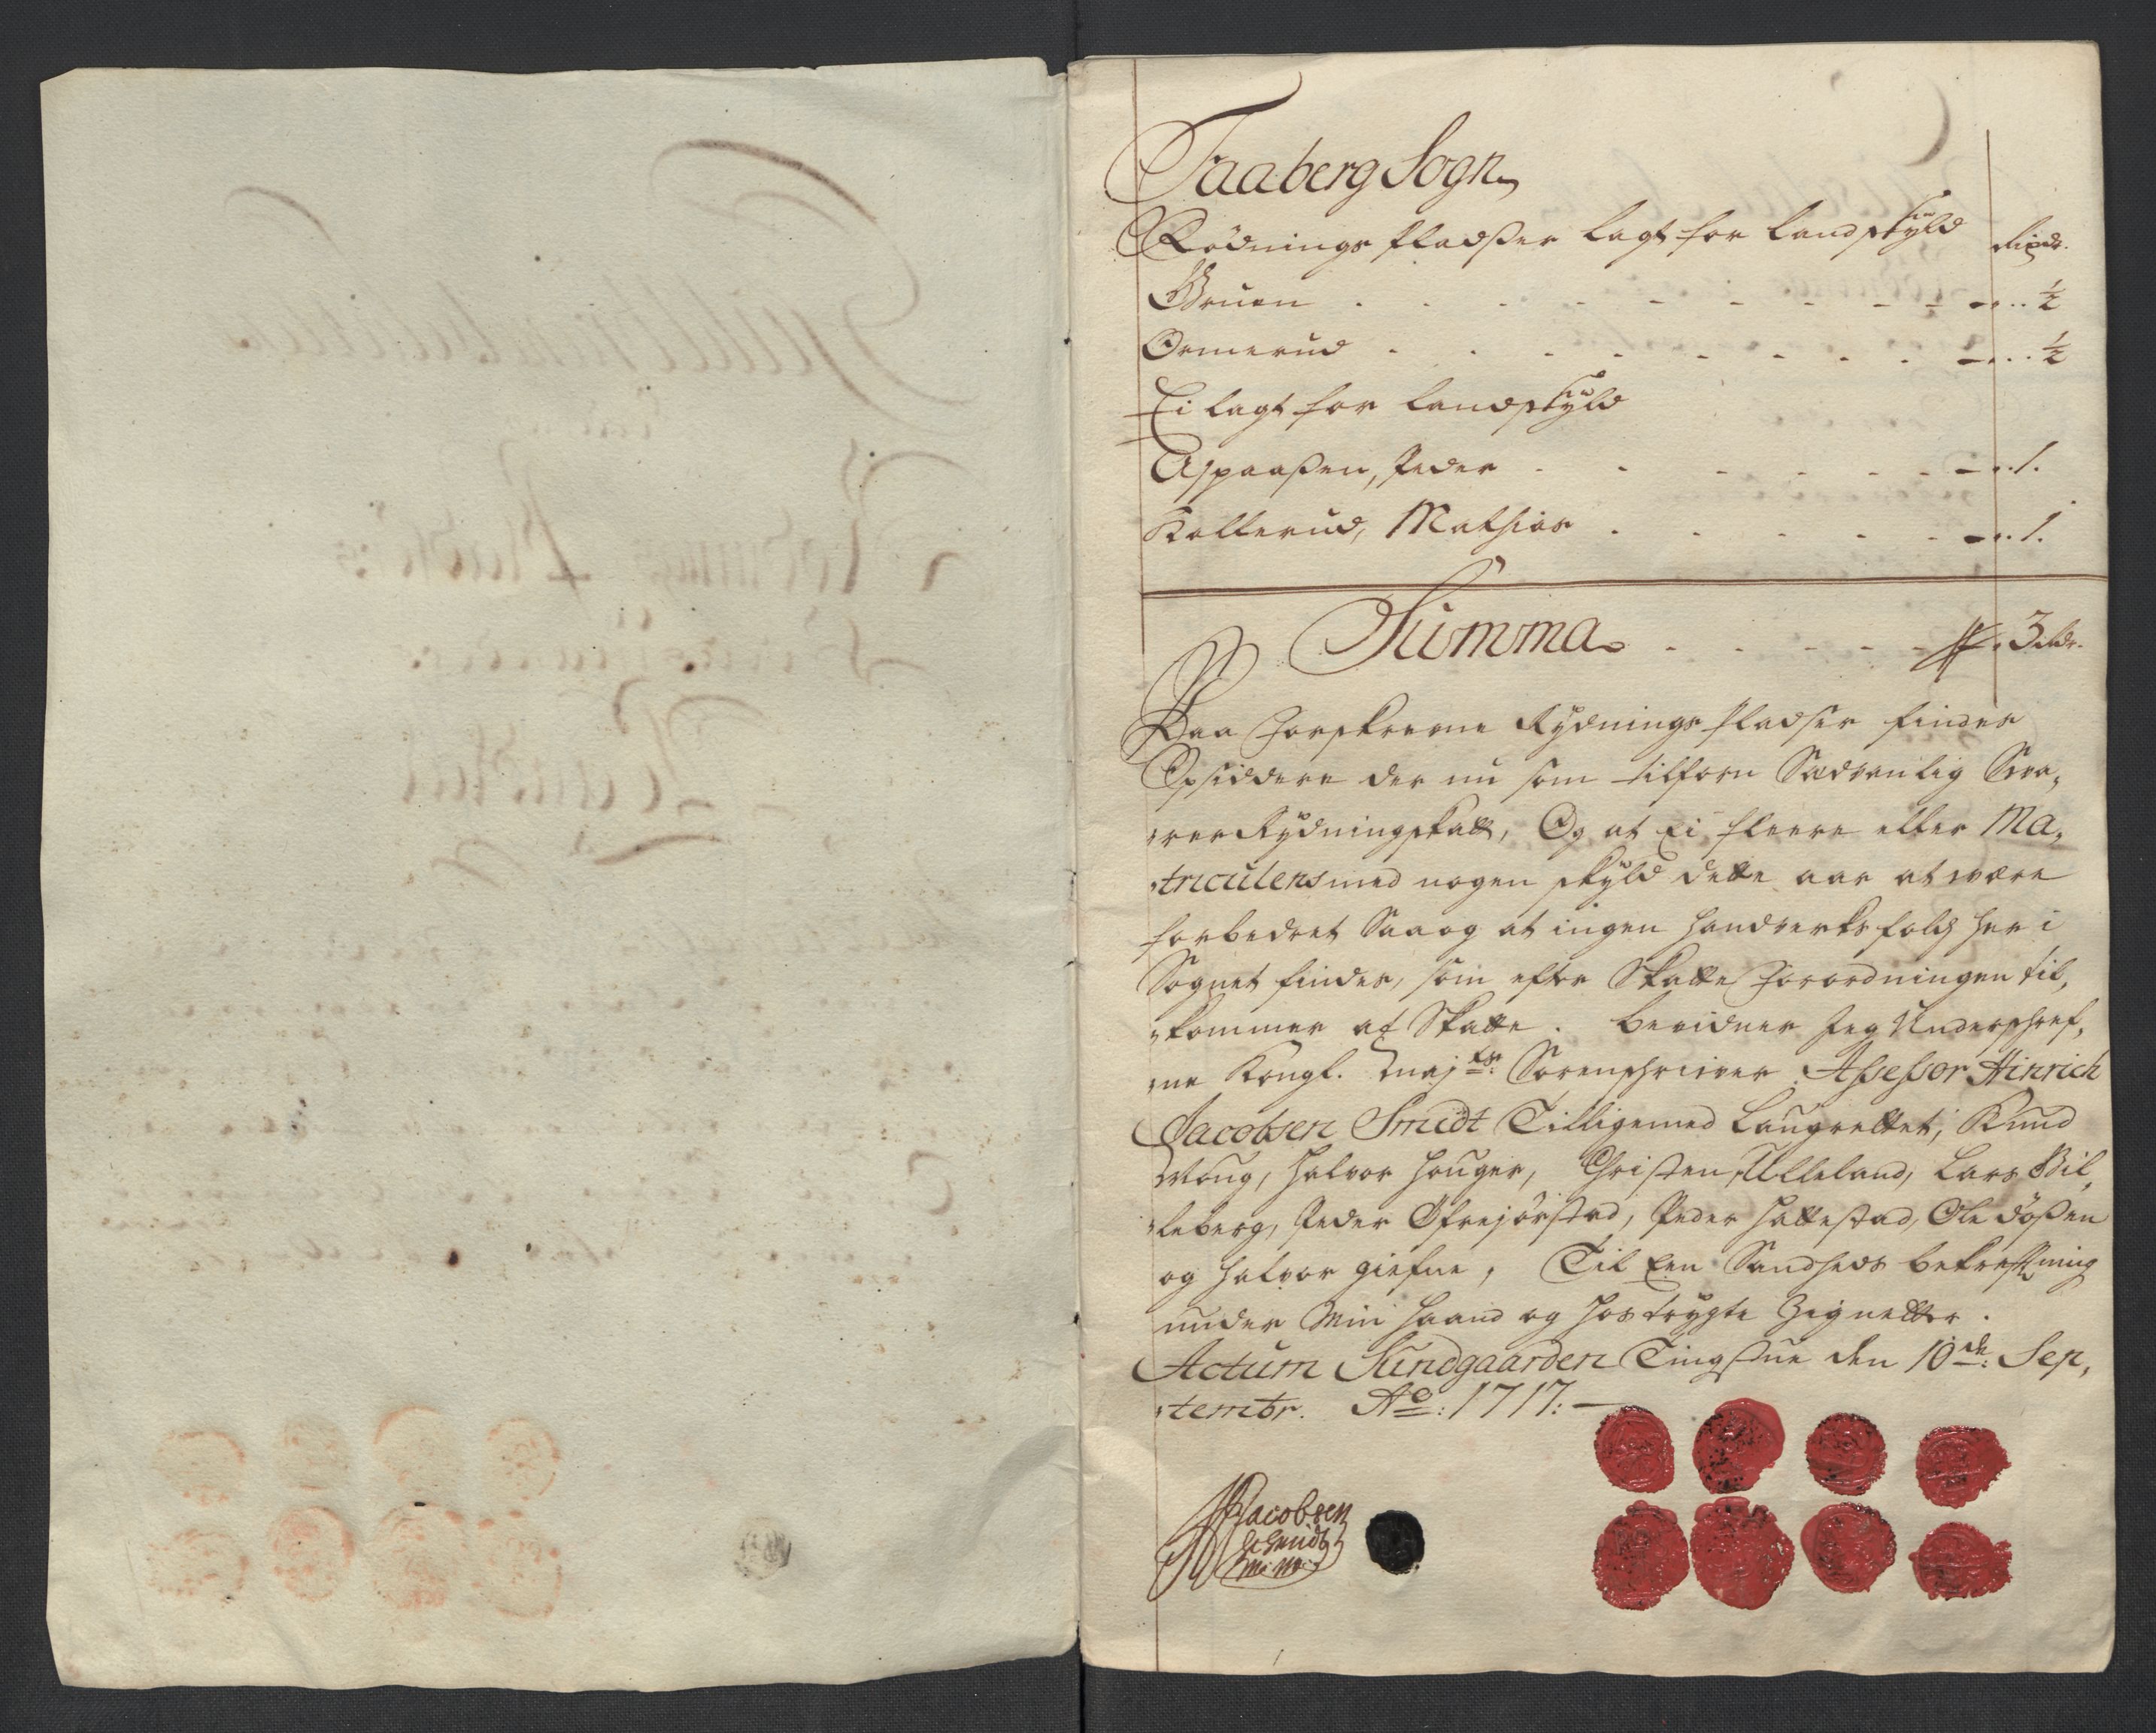 Faaberg Sogn
Rödnings Pladser lagt for Landskyld Rixdr.
Bruen - - - ½
Ormerud - - - ½
Ei lagt for Landskyld
Aspaaßen, Peder - - - 1.
Kollerud, Mathias - - - 1.
Summa - - - 3 Rdr.
Paa Forskrevne Rydnings Pladser findes
Opsiddere der nu som tilforn Sædvanlig Sva„
„rer Rydningskatt, Og at Ei fleere eller Ma„
„triculens med nogen skyld dette aar at være
forbedret Saa og at ingen Handverks folch her i
Sognet findes, som efter Skatte Forordningen til„
„kommer at Skatte. Bevidner Jeg Underschref„
„ne Kongl. Maj.ts Sorenschriiver Assessor Hinrich
Jacobsen Smidt Tilligemed Laugrettet, Knud
Moug, Halvor Houger, Christen Ulleland, Lars Bil„
„leberg, Peder Öfrejörstad, Peder Hattestad, Ole Dößen
og Halvor Giefne, Til Een Sandheds bekreftning
under Min Haand og hostrygte Zignetter.
Actum Sundgaarden Tingstue den 10de: Sep„
„tembr. Ao: 1717:
HJacobsen
Schmidt